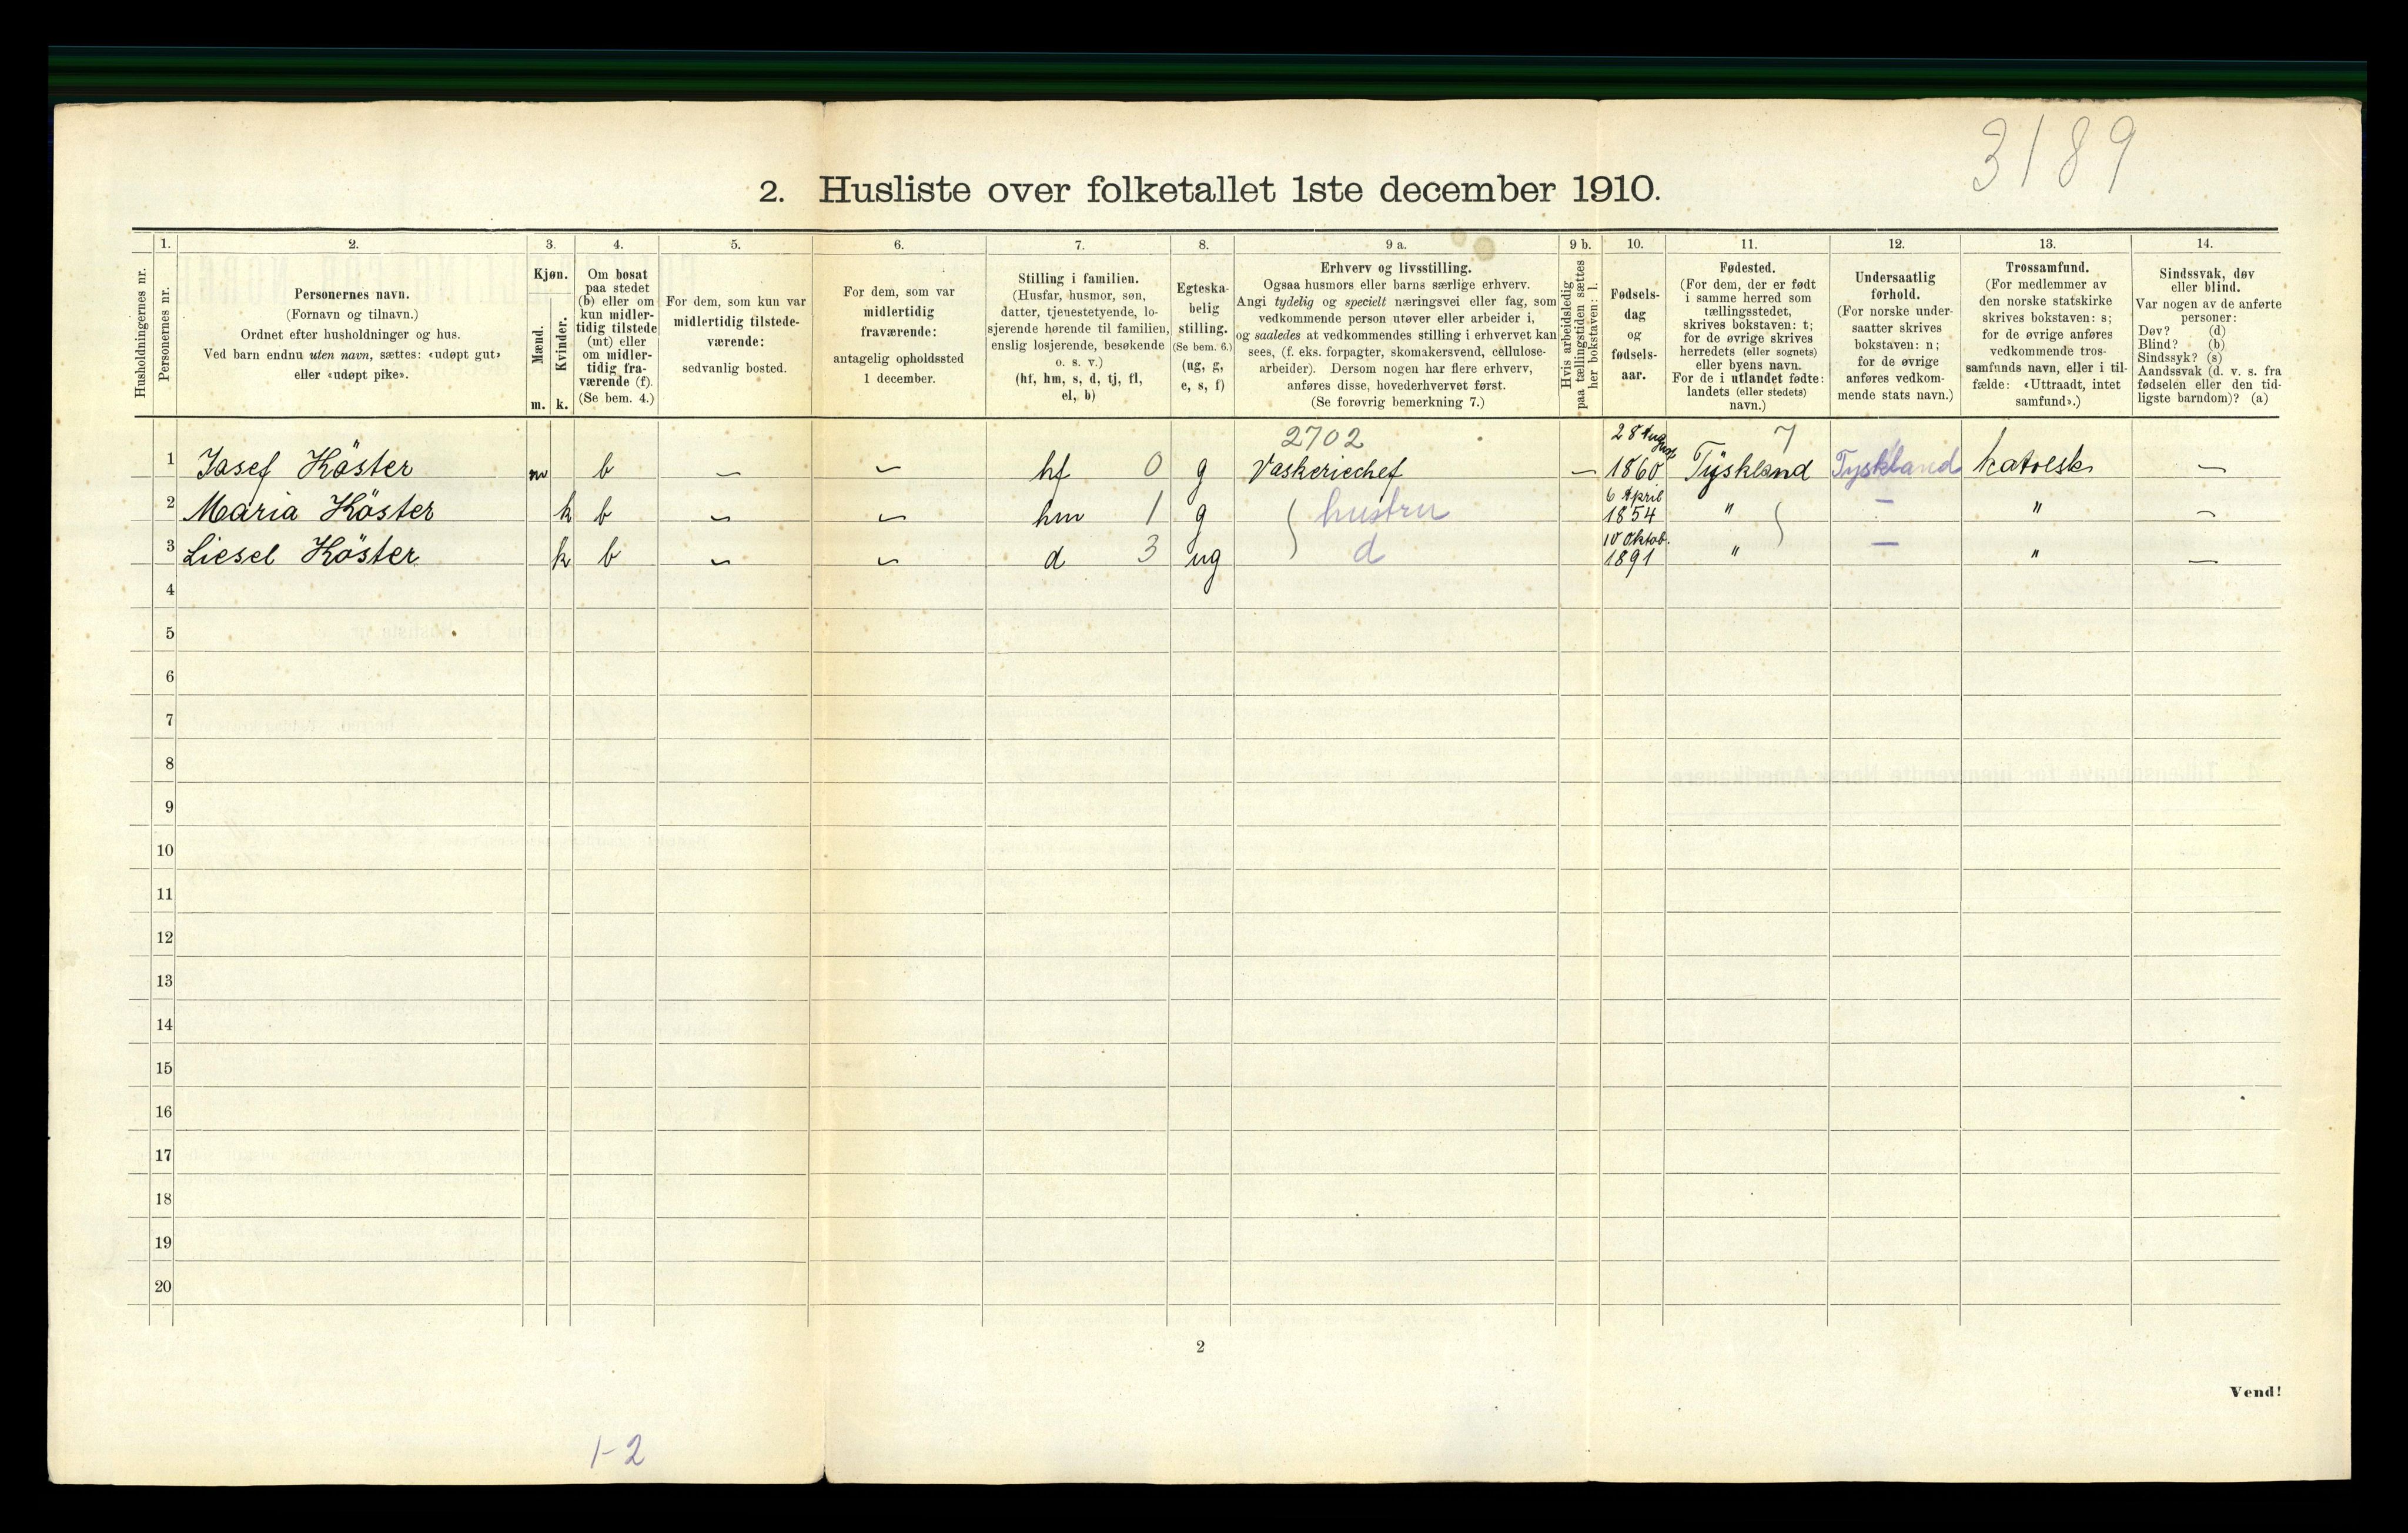 3189
2. Husliste over folketallet 1ste december 1910.
Husholdningernes nr.
1.
Personernes nr.
2.
Personernes navn.
(Fornavn og tilnavn.)
Ordnet efter husholdninger og hus.
Ved barn endnu uten navn, sættes: «udøpt gut»
eller «udøpt pike».
3.
Kjøn.
Mænd.
Kvinder.
m. k.
4.
Om bosat
paa stedet
(b) eller om
kun midler-
tidig tilstede
(mt) eller
om midler-
tidig fra-
værende (f).
(Se bem. 4.)
5.
For dem, som kun var
midlertidig tilstede-
værende:
sedvanlig bosted.
6.
For dem, som var
midlertidig
fraværende:
antagelig opholdssted
1 december.
7.
Stilling i familien.
(Husfar, husmor, søn,
datter, tjenestetyende, lo-
sjerende hørende til familien,
enslig losjerende, besøkende
o. s. v.)
(hf, hm, s, d, tj, fl,
el, b)
8.
Egteska-
belig
stilling.
(Se bem. 6.)
(ug, g,
e, s, f)
9 a.
Erhverv og livsstilling.
Ogsaa husmors eller barns særlige erhverv.
Angi tydelig og specielt næringsvei eller fag, som
vedkommende person utøver eller arbeider i,
og saaledes at vedkommendes stilling i erhvervet kan
sees, (f. eks. forpagter, skomakersvend, cellulose-
arbeider). Dersom nogen har flere erhverv,
anføres disse, hovederhvervet først.
(Se forøvrig bemerkning 7.)
9 b.
Hvis arbeidsledig
paa tællingstiden sættes
her bokstaven: l.
10.
Fødsels-
dag
og
fødsels-
aar.
11.
Fødested.
(For dem, der er født
i samme herred som
tællingsstedet,
skrives bokstaven: t;
for de øvrige skrives
herredets (eller sognets)
eller byens navn.
For de i utlandet fødte:
landets (eller stedets)
navn.)
12.
Undersaatlig
forhold.
(For norske under-
saatter skrives
bokstaven: n;
for de øvrige
anføres vedkom-
mende stats navn.)
13.
Trossamfund.
(For medlemmer av
den norske statskirke
skrives bokstaven: s;
for de øvrige anføres
vedkommende tros-
samfunds navn, eller i til-
fælde: «Uttraadt, intet
samfund».)
14.
Sindssvak, døv
eller blind.
Var nogen av de anførte
personer:
Døv? (d)
Blind? (b)
Sindssyk? (s)
Aandssvak (d. v. s. fra
fødselen eller den tid-
ligste barndom)? (a)
2702 28 August 7
1 Josef Köster m b — — hf 0 g Vaskeriechef — 1860 Tyskland Tyskland katolsk —
6 April
2 Maria Köster k b — — hm 1 g hustru 1854 " — " —
10 Oktob.
3 Liesel Köster k b — — d 3 ug d 1891 " — " —
4
5
6
7
8
9
10
11
12
13
14
15
16
17
18
19
20
2
Vend!
1-2